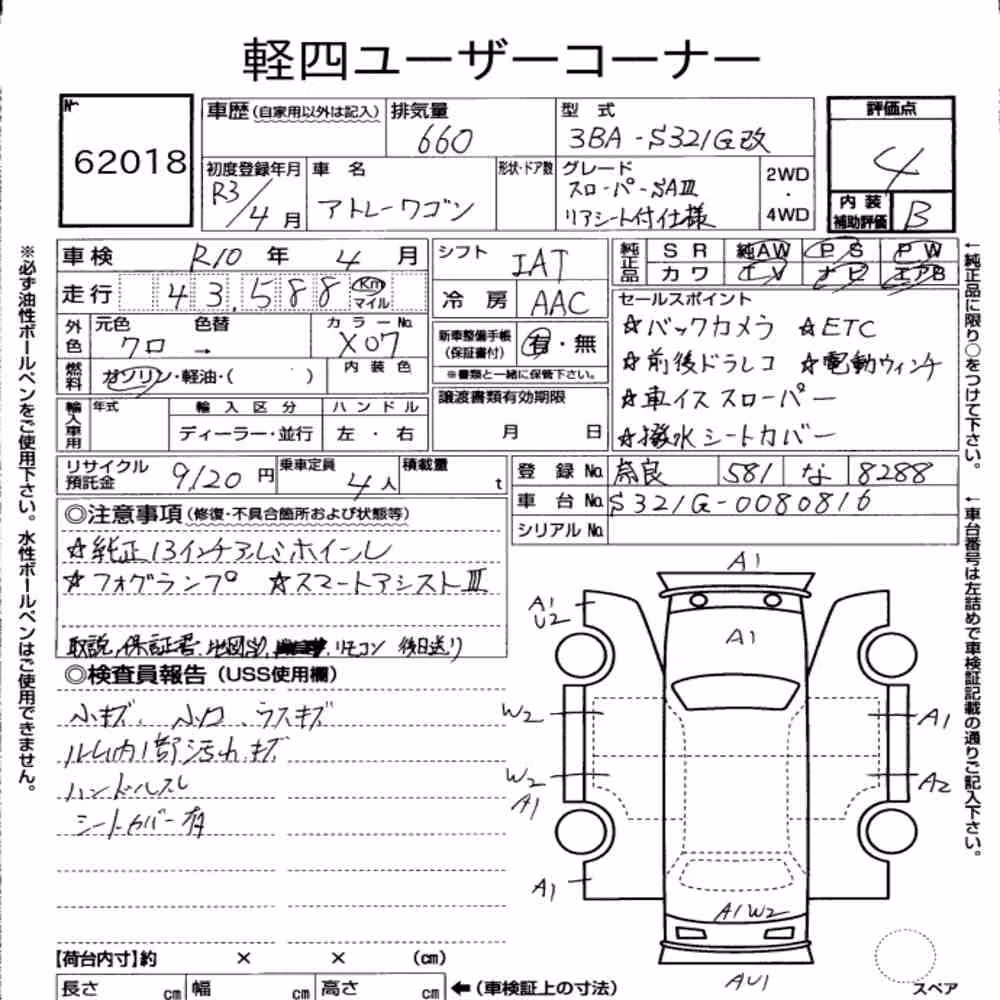 軽四ユーザーコーナー
№
62018
車歴(自家用以外は記入)
排気量
660
型 式
3BA-S321G改
評価点
4
初度登録年月
R3/4月
車 名
アトレーワゴン
形状・ドア数
グレード
スローパーSAⅢ
リアシート付仕様
2WD
・
4WD
内 装
補助評価
B
車検
R10年 4月
シフト
IAT
純正品
S R 純AW P S P W
カワ T V ナビ エアB
走行
43,588
Km
マイル
冷 房
AAC
セールスポイント
☆バックカメラ ☆ETC
☆前後ドラレコ ☆電動ウィンチ
☆車イススローパー
☆撥水シートカバー
外色
元色 色替
クロ →
カラーNo.
X07
新車整備手帳
(保証書付)
有・無
※書類と一緒に保管下さい。
燃料
ガソリン・軽油・( )
内 装 色
輸入車用
年式
輸 入 区 分
ディーラー・並行
ハ ン ド ル
左 ・ 右
譲渡書類有効期限
月 日
リサイクル
預託金
9120円
乗車定員
4人
積載量
t
登 録 No.
奈良 581 な 8288
車 台 No.
S321G-0080816
シリアル No.
◎注意事項(修復・不具合箇所および状態等)
☆純正13インチアルミホイール
☆フォグランプ ☆スマートアシストⅢ
取説、保証書、 リモコン 後日送り
◎検査員報告(USS使用欄)
小キズ、小凹、ラスキズ
ルーム内1部汚れ、キズ
ハンドルスレ
シートカバー有
A1
A1
U2
A1
W2
A1
W2
A1
A2
A1
A1W2
AU1
スペア
【荷台内寸】約 × × (cm)
長さ cm 幅 cm 高さ cm ←(車検証上の寸法)
※必ず油性ボールペンをご使用下さい。水性ボールペンはご使用できません。
←純正品に限り○をつけて下さい。
←車台番号は左詰めで車検証記載の通りご記入下さい。